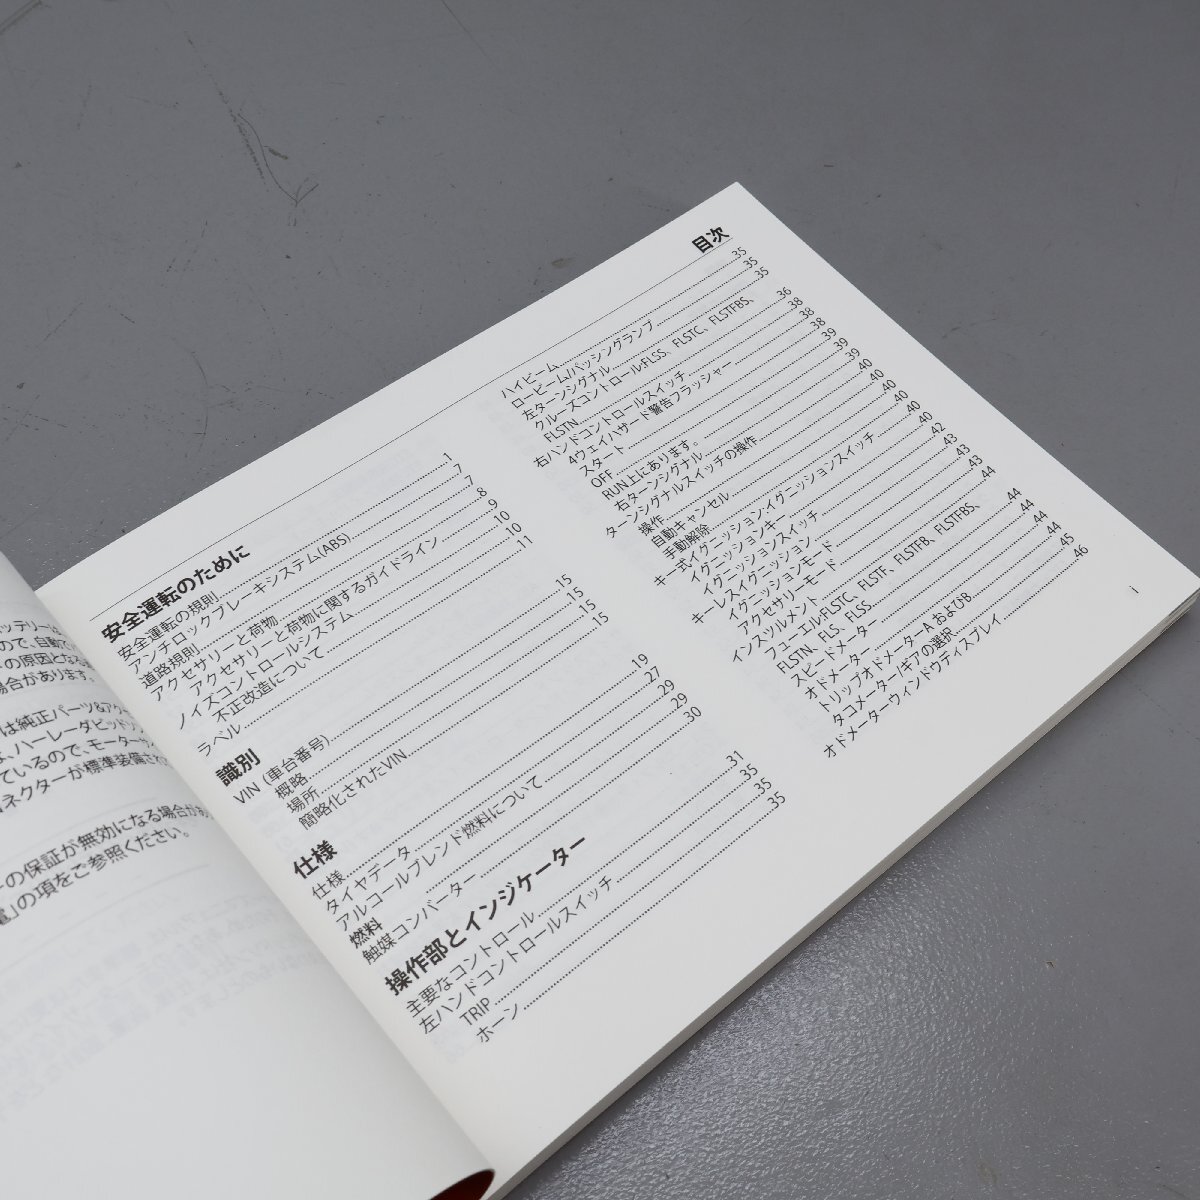 目次
安全運転のために
安全運転の規則 1
アンチロックブレーキシステム(ABS) 7
道路規則 7
アクセサリーと荷物 8
アクセサリーと荷物に関するガイドライン 9
ノイズコントロールシステム 10
不正改造について 10
ラベル 11
識別
VIN (車台番号) 15
概略 15
場所 15
簡略化されたVIN 15
仕様
仕様 19
タイヤデータ 27
アルコールブレンド燃料について 29
燃料 29
触媒コンバーター 30
操作部とインジケーター
主要なコントロール 31
左ハンドコントロールスイッチ 35
TRIP 35
ホーン 35
ハイビーム 35
ロービーム/パッシングランプ 35
左ターンシグナル 35
クルーズコントロール:FLSS、FLSTC、FLSTFBS、
FLSTN 36
右ハンドコントロールスイッチ 38
4ウェイハザード警告フラッシャー 38
スタート 38
OFF 39
RUN上にあります。 39
右ターンシグナル 39
ターンシグナルスイッチの操作 40
操作 40
自動キャンセル 40
手動解除 40
キー式イグニション:イグニッションスイッチ 40
イグニッションキー 42
イグニッションスイッチ 43
キーレスイグニッション 43
イグニションモード 43
アクセサリーモード 44
インスツルメント 44
フューエル:FLSTC、FLSTF、FLSTFB、FLSTFBS、
FLSTN、FLS、FLSS 44
スピードメーター 44
オドメーター 44
トリップオドメーターA およびB 44
タコメーター/ギアの選択 45
オドメーターウィンドウディスプレイ 46
i
ので、自動で
の原因となる
場合があります。
は純正パーツ&アク
ているので、モーター
ネクターが標準装備され
ーの保証が無効になる場合があ
」の項をご参照ください。